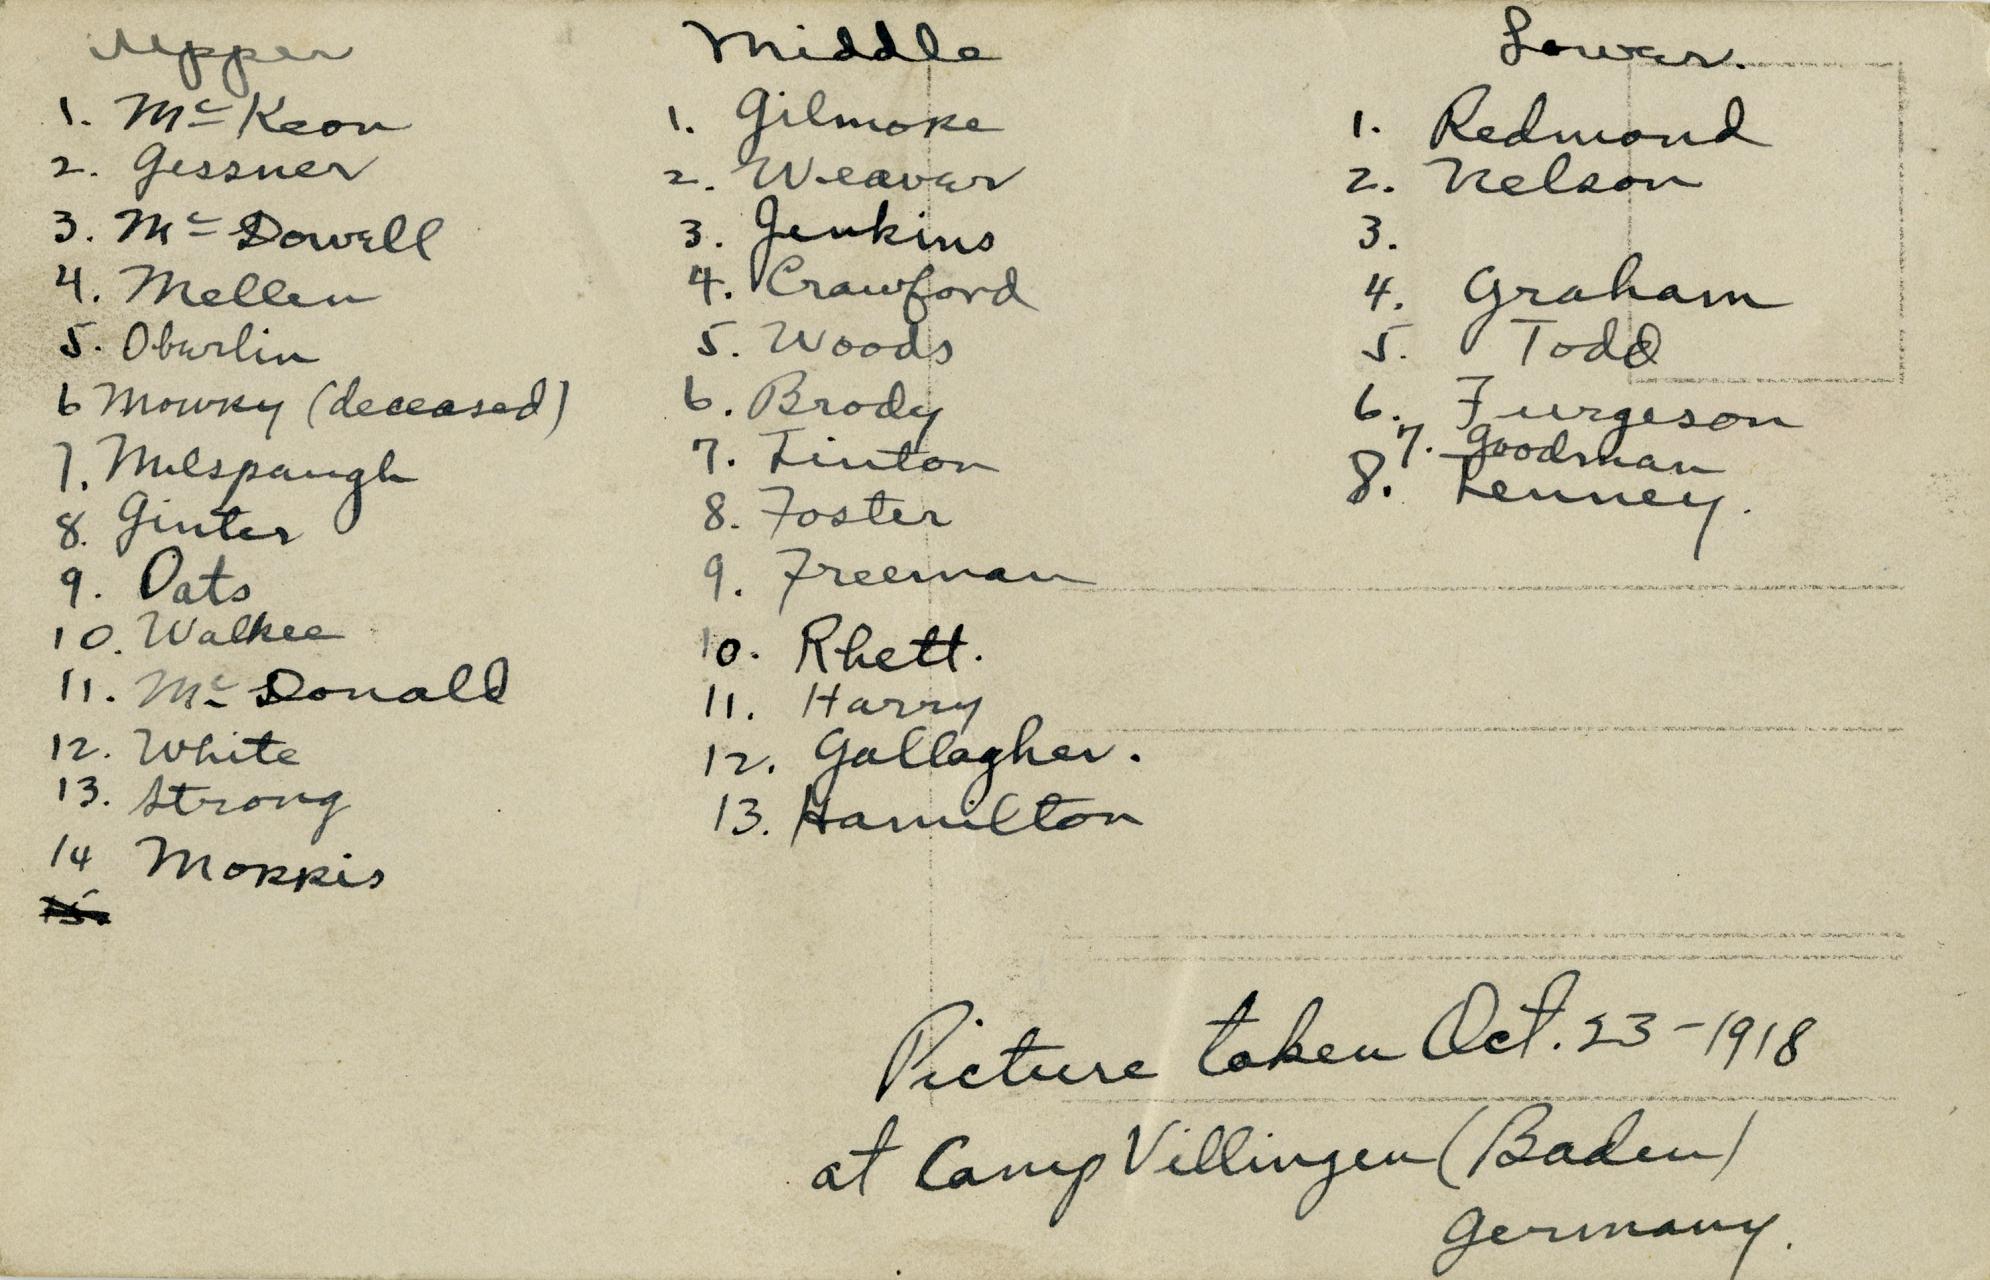 Upper
1. Mc Keon
2. Gessner
3. Mc Dowell
4. Mellen
5. Oberlin
6 Mowry (deceased)
7. Milspaugh
8. Ginter
9. Oats
10. Walkee
11. Mc Donald
12. White
13. Strong
14 Morris
15.
Middle
1. Gilmore
2. Weaver
3. Jenkins
4. Crawford
5. Woods
6. Brody
7. Linton
8. Foster
9. Freeman
10. Rhett.
11. Harry
12. Gallagher.
13. Hamilton
Lower.
1. Redmond
2. Nelson
3.
4. Graham
5. Todd
6. Furgeson
7. Goodman
8. Tenney.
Picture taken Oct. 23-1918
at Camp Villingen (Baden)
Germany.